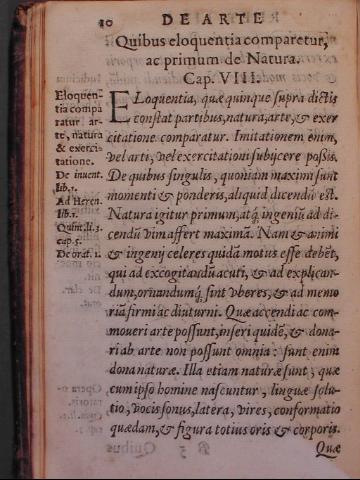 10 DE ARTE
Quibus eloquentia comparetur,
ac primum de Natura.
Cap. VIII.
Eloquen-
tia compa
ratur ar-
te, natura
& exerci-
tatione.
De inuent.
lib.1.
Ad Heren.
lib.1.
Quint. li.3.
cap.5.
De orat. 1.
ELoquentia, quæ quinque supra dictis
constat partibus, natura, arte, & exer
citatione comparatur. Imitationem enim,
vel arti, vel exercitationi subijcere possis.
De quibus singulis, quoniam maximi sunt
momenti & ponderis, aliquid dicendũ est.
Natura igitur primum, atq; ingeniũ ad di-
cendũ vim affert maximã. Nam & animi
& ingenij celeres quidã motus esse debẽt,
qui ad excogitandũ acuti, & ad explican-
dum, ornandumq; sint vberes, & ad memo
riã firmi ac diuturni. Quæ accendi ac com-
moueri arte possunt, inseri quidẽ, & dona-
ri ab arte non possunt omnia: sunt enim
dona naturæ. Illa etiam naturæ sunt; quæ
cum ipso homine nascuntur, linguæ solu-
tio, vocis sonus, latera, vires, conformatio
quædam, & figura totius oris & corporis.
Quæ